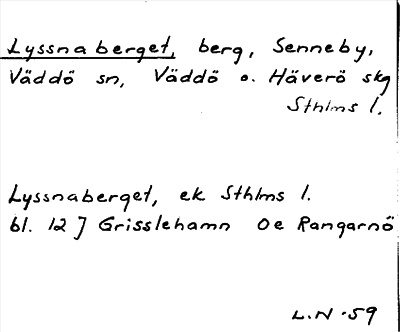 Lyssnaberget, berg, Senneby,
Väddö sn, Väddö o. Häverö skg
Sthlms l.
Lyssnaberget, ek Sthlms l.
bl. 12 J Grisslehamn Oe Rangarnö
L.N -59